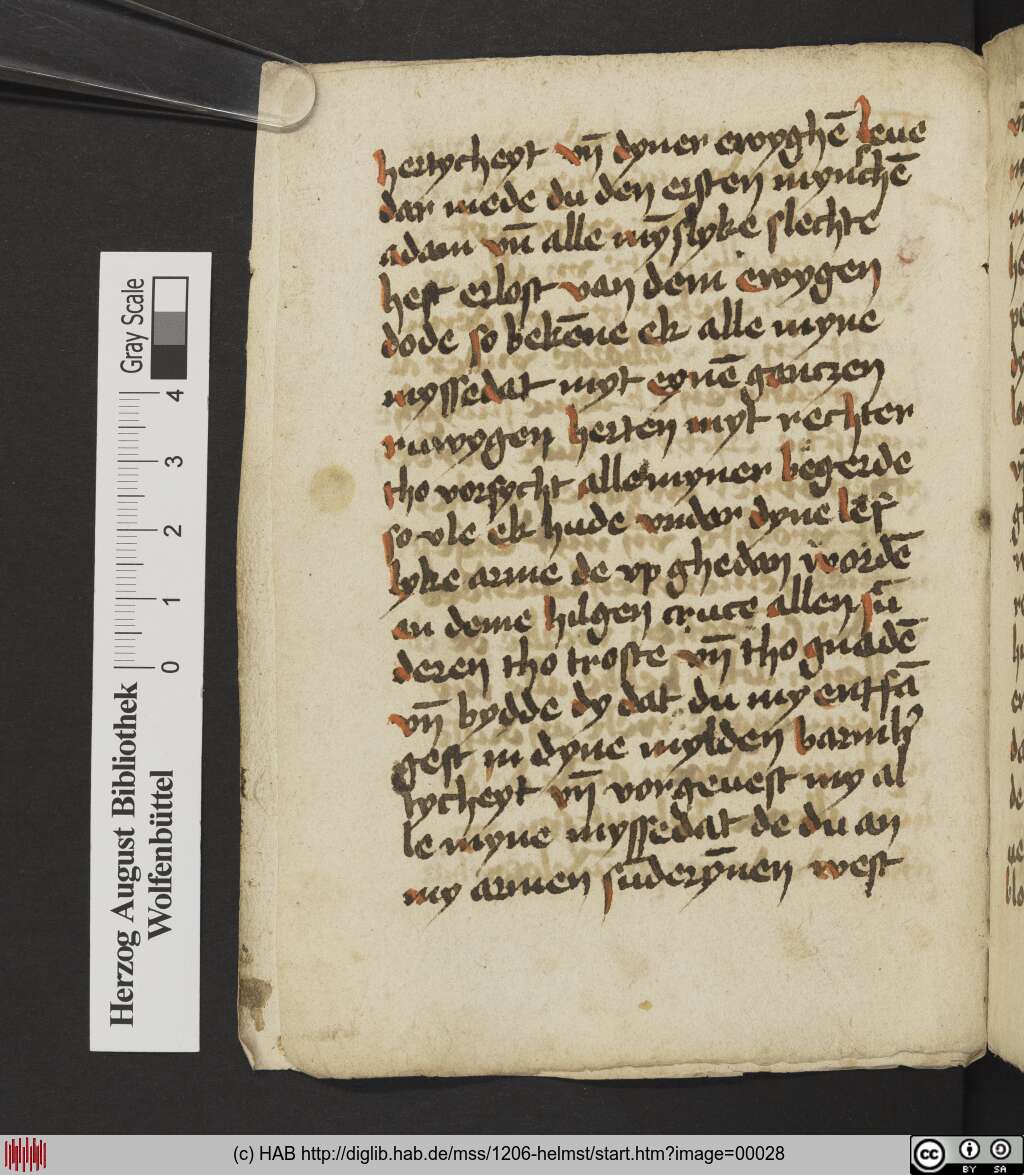 hertycheyt vn̄ dyner ewyghē leue
dar mede du den ersten mynschē
adam vn̄ alle mȳslyke slechte
hest erlost van dem ewygen
dode so bekēne ek alle myne
myssedat myt eynē ganczen
ruwygen herten myt rechter
tho vorsycht alle myner begerde
so vle ek hude vnder dyne lēf
lyke arme de vp ghedan wordē
an deme hilgen cruce allen sū
deren tho troste vn̄ tho gnadē
vn̄ bydde dy dat du my entfā
gest in dyne mylden barmh'
tycheyt vn̄ vorgeuest my al
le myne myssedat de du an
my armen sūderȳnen west
Gray Scale
4
3
2
1
0
Herzog August Bibliothek
Wolfenbüttel
(c) HAB http://diglib.hab.de/mss/1206-helmst/start.htm?image=00028
cc BY SA